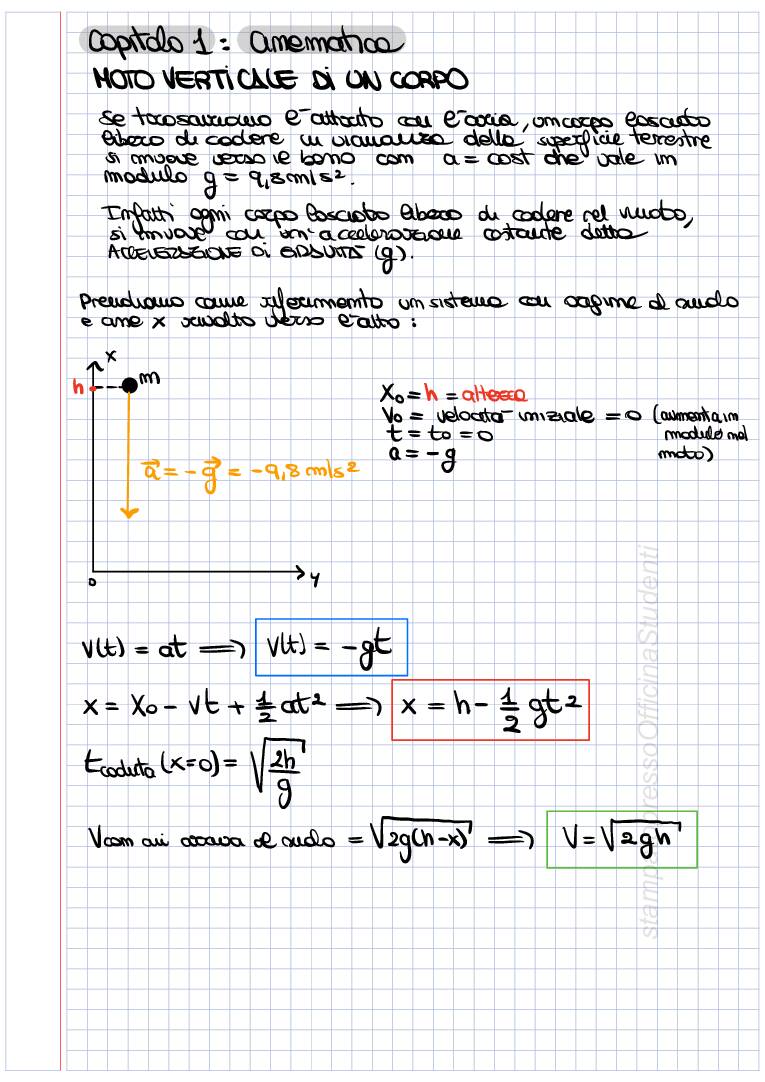 Capitolo 1: Cinematica
MOTO VERTICALE DI UN CORPO
Se trascuriamo l'attrito con l'aria, un corpo lasciato
libero di cadere in vicinanza della superficie terrestre
si muove verso il basso con a = cost che vale in
modulo g = 9,8 m/s².
Infatti ogni corpo lasciato libero di cadere nel vuoto,
si muove con un'accelerazione costante detta
ACCELERAZIONE DI GRAVITÀ (g).
Prendiamo come riferimento un sistema con origine al suolo
e asse x rivolto verso l'alto:
x
h
m
X₀ = h = altezza
V₀ = velocità iniziale = 0 (aumenta in
modulo nel
moto)
t = t₀ = 0
a = -g
a⃗ = -g⃗ = -9,8 m/s²
0
y
V(t) = at ⟹ V(t) = -gt
x = X₀ - vt + 1/2 at² ⟹ x = h - 1/2 gt²
t caduta (x=0) = √(2h/g)
V con cui arriva al suolo = √(2g(h-x)) ⟹ V = √(2gh)
stampa pressoOfficinaStudenti